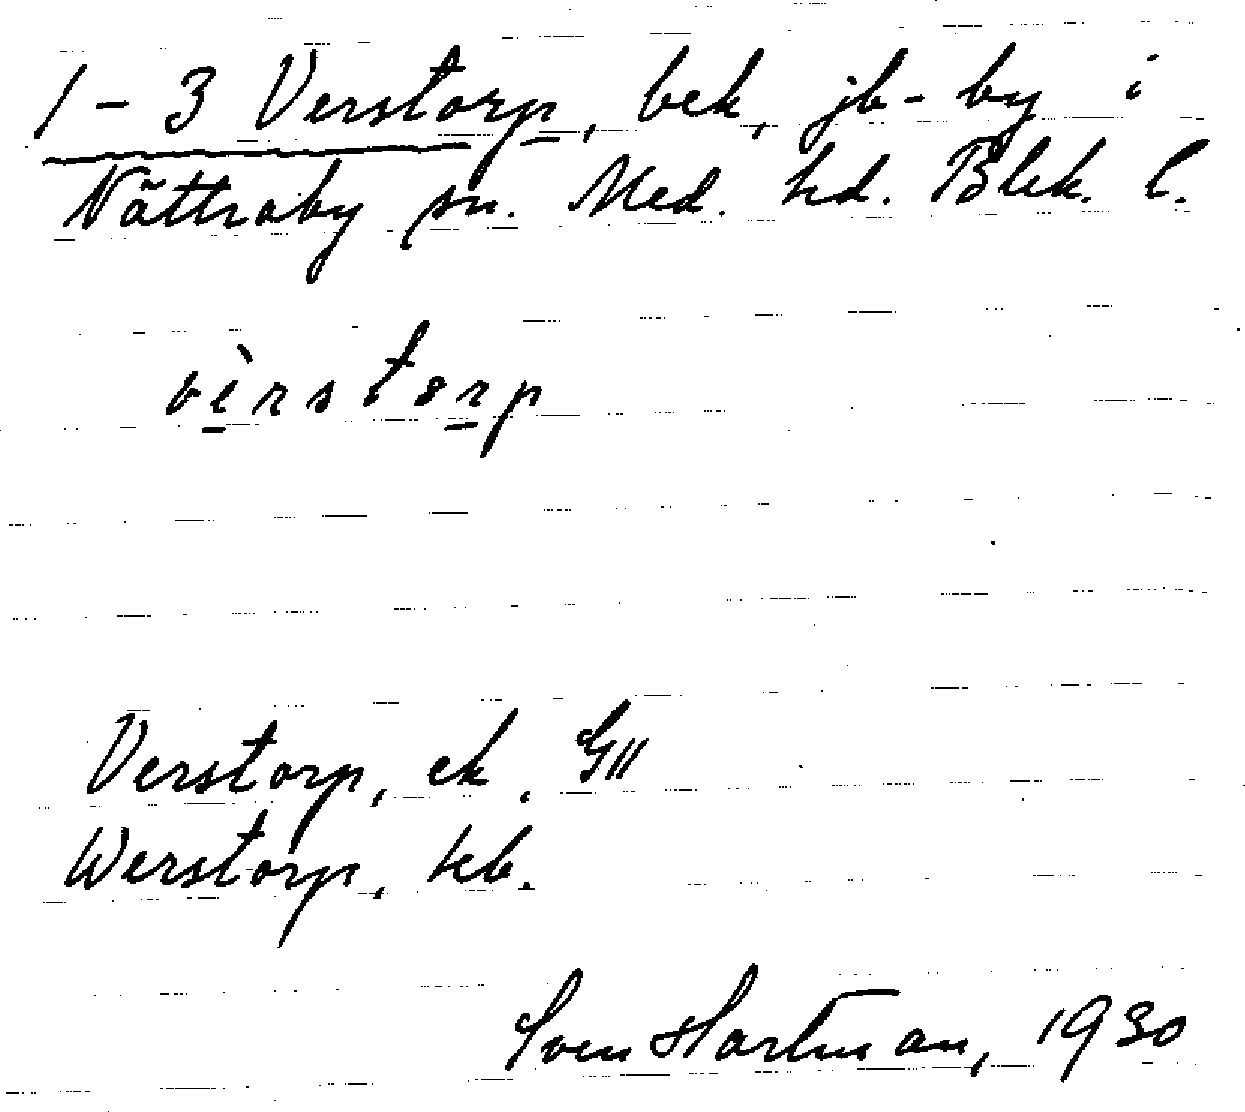 1-3 Verstorp, bek, jb-by i
Nättraby sn. Med. hd. Blek. l.
vèrstorp
Verstorp, ek, GII
Werstorp, kb.
Sven Hartman, 1930